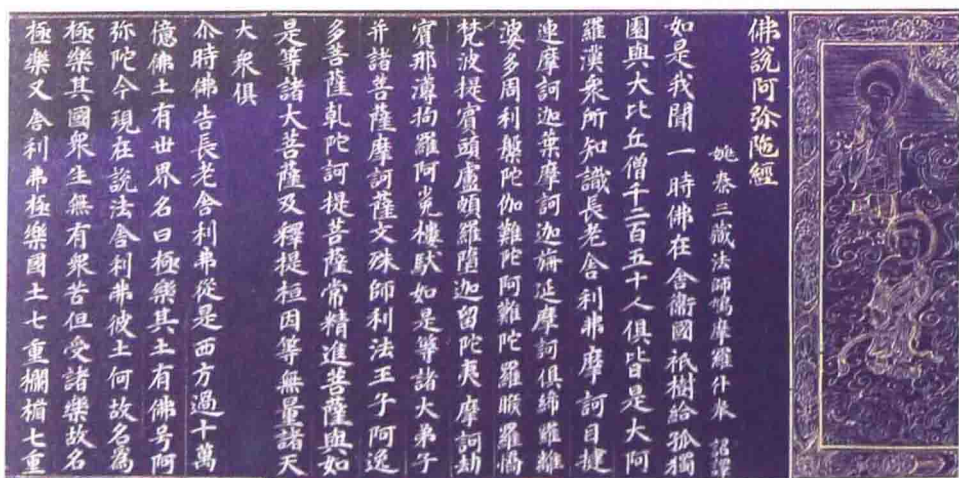 佛說阿弥陁經
姚秦三藏法師鳩摩羅什奉 詔譯
如是我聞一時佛在舍衛國祇樹給孤獨
園與大比丘僧千二百五十人俱皆是大阿
羅漢衆所知識長老舍利弗摩訶目揵
連摩訶迦葉摩訶迦旃延摩訶俱絺羅離
婆多周利槃陀伽難陀阿難陀羅睺羅憍
梵波提賓頭盧頗羅墮迦留陀夷摩訶劫
賓那薄拘羅阿㝹樓馱如是等諸大弟子
并諸菩薩摩訶薩文殊師利法王子阿逸
多菩薩乹陀訶提菩薩常精進菩薩與如
是等諸大菩薩及釋提桓因等無量諸天
大衆俱
尒時佛告長老舍利弗從是西方過十萬
億佛土有世界名曰極樂其土有佛号阿
弥陀今現在說法舍利弗彼土何故名為
極樂其國衆生無有衆苦但受諸樂故名
極樂又舍利弗極樂國土七重欄楯七重